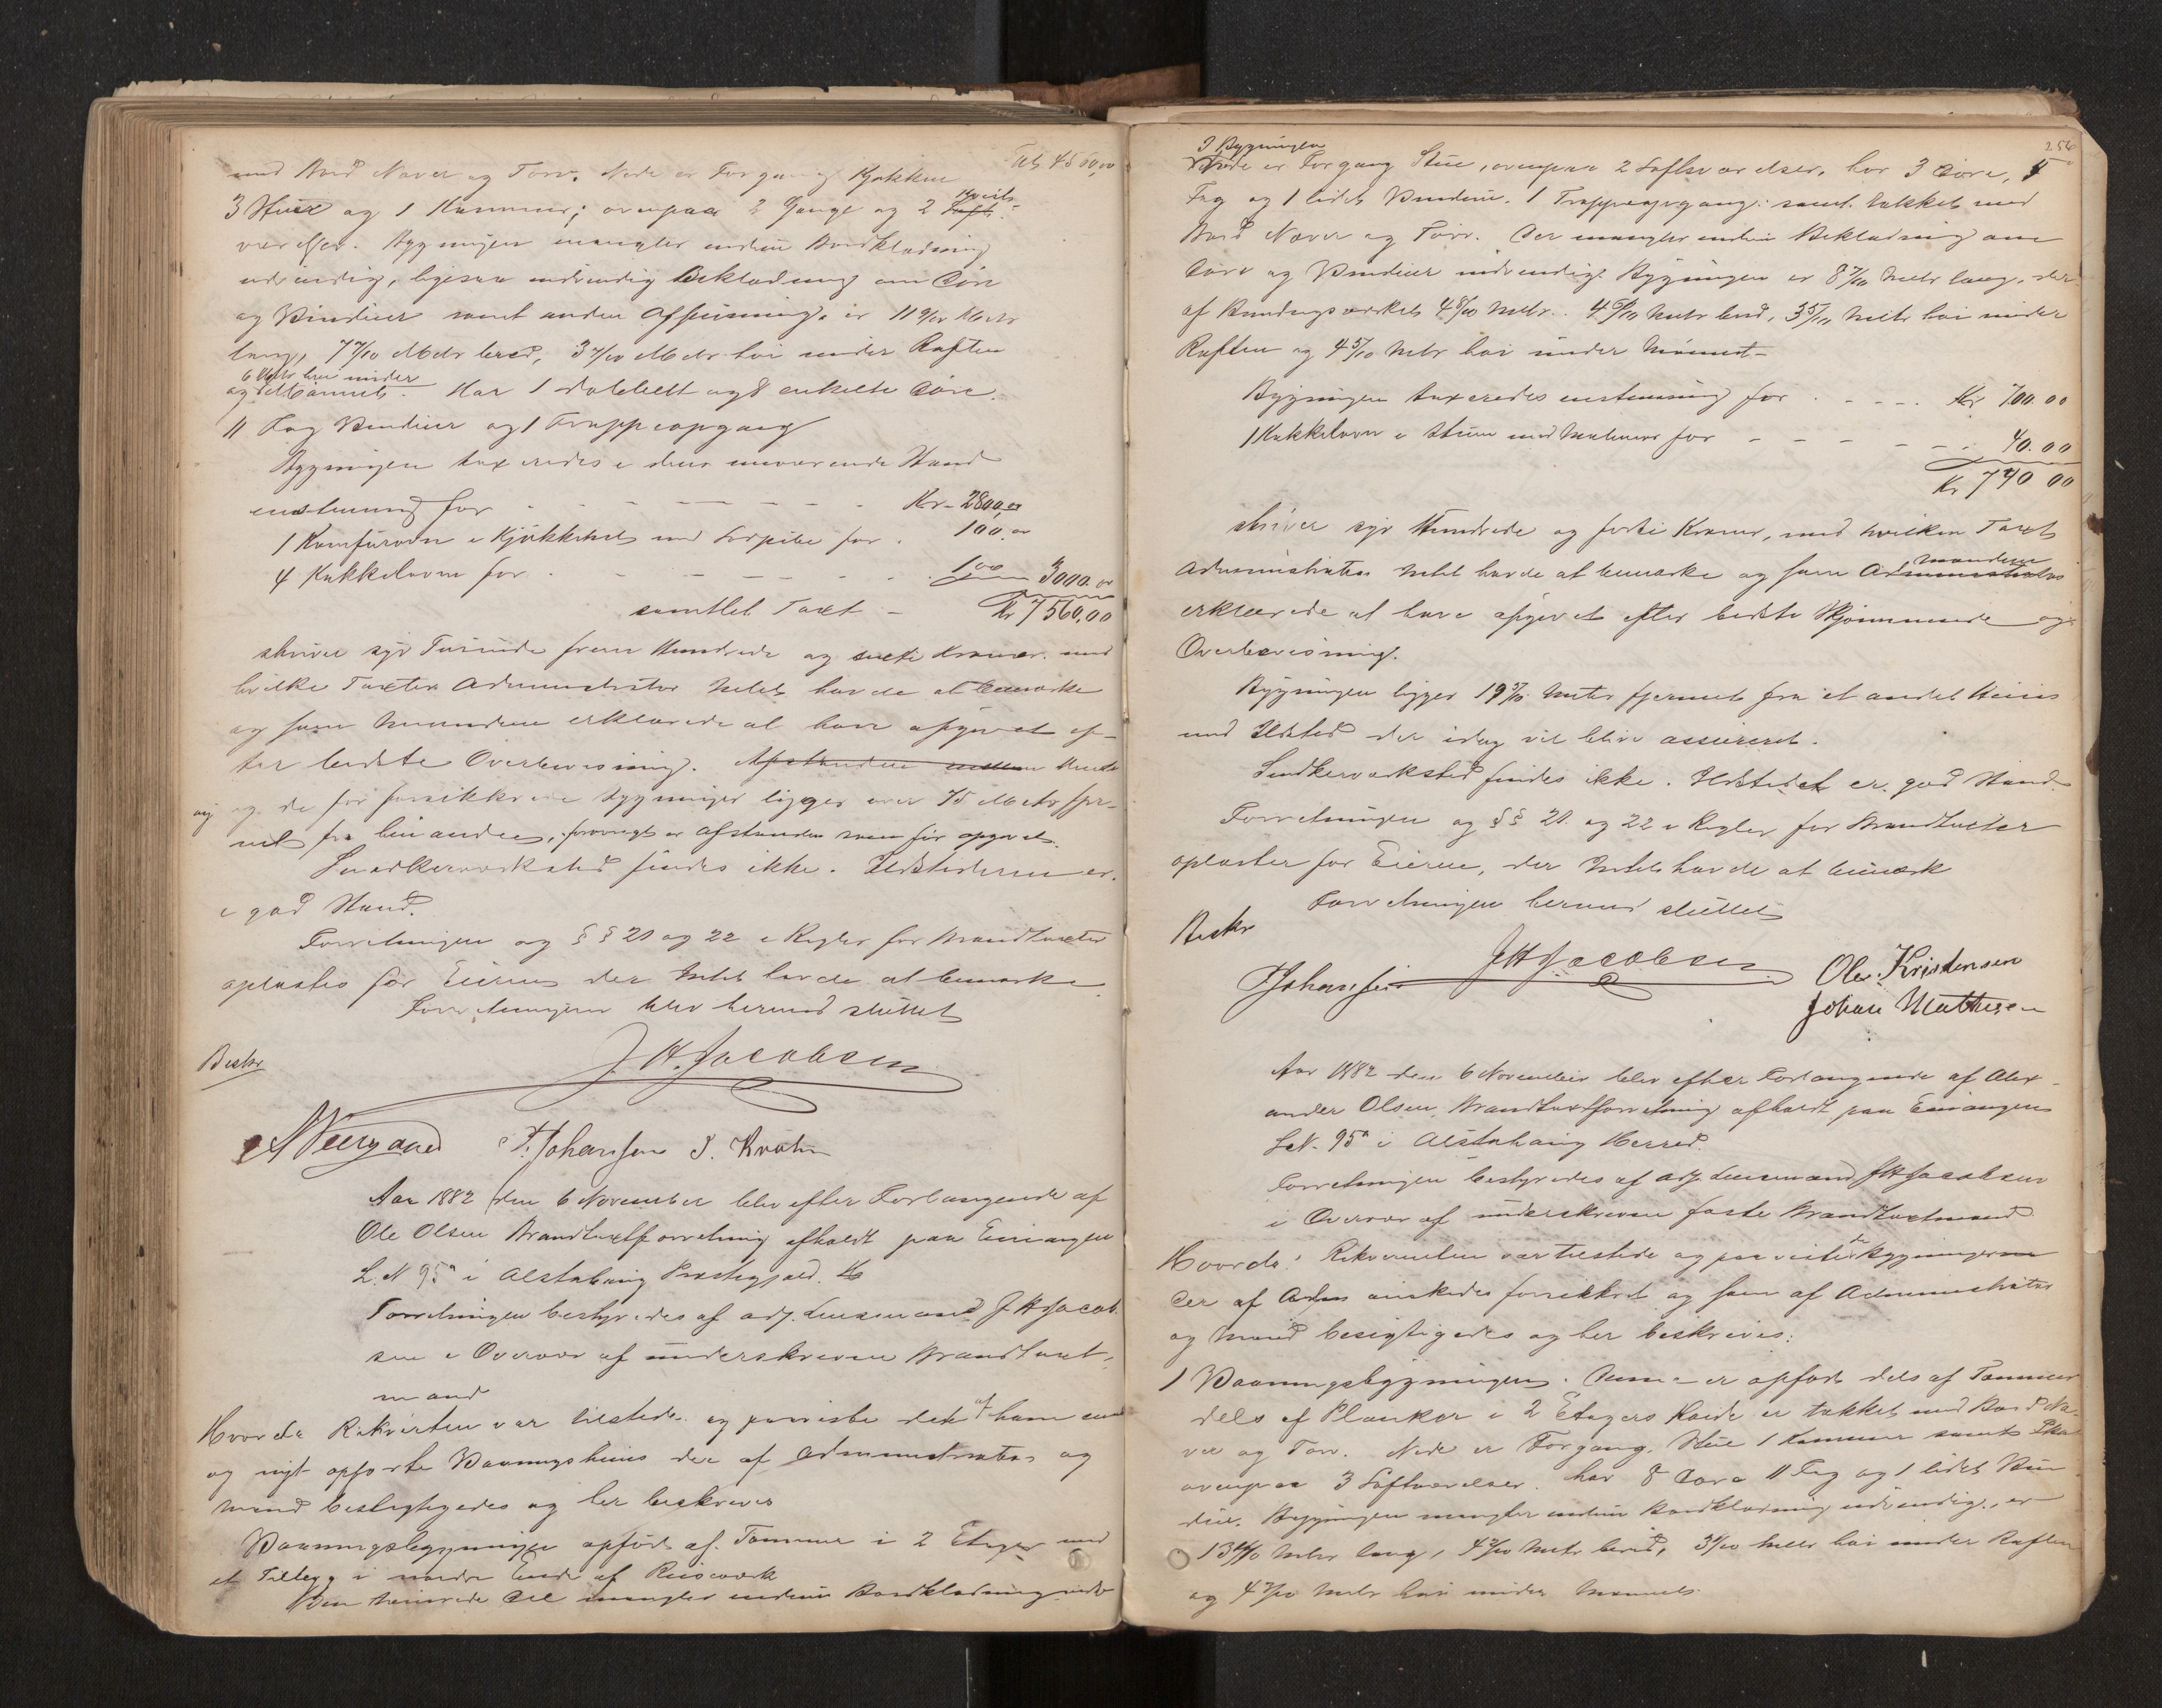 Tbs 4560,00
med Bord Næver og Törv. Nede er Forgang Kjökken
3 Stuer og 1 Kammer; ovenpaa 2 Gange og 2 Kvist-
værelser. Bygningen mangler endnu Bordklædning
udvendig, ligesaa indvendig Beklædning om Döre
og Vinduer samt anden Afpudsning, er 11 9/10 Metr
lang, 7 7/10 Metr bred, 3 7/10 Metr höi under Raften
og 6 Metr höi under Mönnet. Har 1 dobbelt og 8 enkelte Döre.
11 Fag Vinduer og 1 Trappeopgang
Bygningen taxeredes i dens nuværende Stand
enstemmig for - - - - - - Kr. 2800,00
1 Komfurovn i Kjökkenet med Sodpibe for . 100,00
4 Kakkelovne for - - - - - - 100 3000.00
samtlet Taxt - Kr 7560,00
skriver syv Tusinde fem Hundrede og sexti Kroner med
hvilke Taxter Administrator Intet havde at bemærke
og som Mændene erklærede at have afgivet ef-
ter bedste Overbevisning. Afstanden mellem
og de for forsikkrede Bygninger ligger over 75 Metr fjer-
net fra hinanden, forövrigt er Afstanden som för opgivet.
Snedkerværksted findes ikke. Ildstederne er
i god Stand.
Forretningen og §§ 21 og 22 i Regler for Brandtaxter
oplæstes for Eieren der Intet havde at bemærke
Forretningen blev hermed sluttet
Beskr
J. H. Jacobsen
Neergaard P. Johansen J. Krohn
Aar 1882 den 6 November blev efter Forlangende af
Ole Olsen Brandtaxtforretning afholdt paa Einingen
L.N 95a i Alstahaug Præstegjæld.
Forretningen bestyredes af adj. Lensmand J H Jacob-
sen i Overvær af underskrevne Brandtaxt-
mænd
Hvorda Rekvirenten var tilstede og paaviste det af ham
og nyt opförte Vaaningshuus der af Administrator og
Mænd besigtigedes og her beskrives
Vaaningsbygningen opfört af Tömmer i 2 Etager med
et Tillæg i nordre Ende af Reisværk
Den tömrede Del mangler endnu Bordklædning
256
I Bygningen
Nede er Forgang Stue, ovenpaa 2 Loftsværelser, har 3 Döre, 5
Fag og 1 lidet Vindue. 1 Trappeopgang samt takket med
Bord Næver og Törv. Der mangler endnu Beklædning om
Döre og Vinduer indvendig. Bygningen er 8 7/10 Metr lang, der-
af Bindingsværket 4 8/10 Metr. 4 6/10 Metr bred, 3 5/10 Metr höi under
Raften og 4 5/10 Metr höi under Mönnet-
Bygningen taxeredes enstemmig for . - - - Kr 700.00
1 Kakkelovn i Stuen med Materiar for - - - - - 40.00
Kr 740 00
skriver syv Hundrede og forti Kroner, med hvilken Taxt
Administrator Intet havde at bemærke og som Mændene Administrator
erklærede at have afgivet efter bedste Skjönnende og
Overbevisning.
Bygningen ligger 19 Meter fjernet fra et andet Huus
med Ildsted der idag vil blive assureret.
Snedkerværksted findes ikke. Ildstedet er god Stand.
Forretningen og §§ 21 og 22 i Regler for Brandtaxter
oplæstes for Eieren, der Intet havde at bemærk
Forretningen hermed sluttet
Beskr
P Johansen J H Jacobsen Ole Kristensen
Johan Mathisen
Aar 1882 den 6 November blev efter Forlangende af Alex-
ander Olsen Brandtaxtforretning afholdt paa Einingen
L.N. 95a i Alstahaug Herred.
Forretningen bestyredes af adj. Lensmand J H Jacobsen
i Overvær af underskrevne faste Brandtaxtmænd
Hvorda: Rekvirenten var tilstede og paaviste de Bygninger
der af ham önskedes forsikkret og som af Administrator
og Mænd besigtigedes og her beskrives:
1 Vaaningsbygningen. Denne er opfört dels af Tömmer
dels af Planker i 2 Etagers Höide er takket med Bord Næ-
ver og Törv. Nede er Forgang, Stue 1 Kammer samt
ovenpaa 3 Loftværelser. har 8 Döre 11 Fag og 1 lidet Vin-
due. Bygningen mangler endnu Bordklædning udvendig, er
13 Metr lang, 4 Metr bred, 3 Metr höi under Raften
og 4 Metr höi under Mönnet.